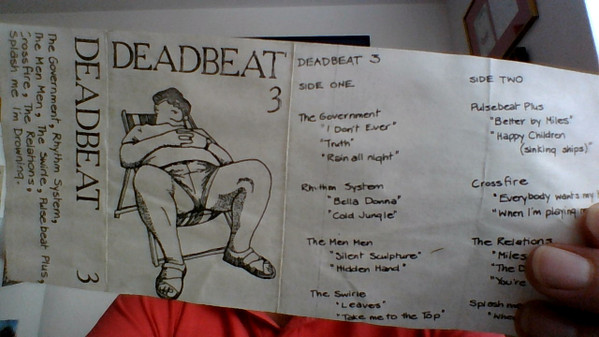 The Government Rhythm System,
The Men Men, The Swirle, Pulsebeat Plus,
Crossfire, The Relations
Splash me I'm Drowning.
DEADBEAT 3
DEADBEAT
3
DEADBEAT 3
SIDE ONE
The Government
"I Don't Ever"
"Truth"
"Rain all night"
Rhythm System
"Bella Donna"
"Cold Jungle"
The Men Men
"Silent Sculpture"
"Hidden Hand"
The Swirle
"Leaves"
"Take me to the Top"
SIDE TWO
Pulsebeat Plus
"Better by Miles"
"Happy Children
(sinking ships)"
Crossfire
"Everybody wants my
"When I'm playing
The Relations
"Miles
"The D
"You're
Splash me
"Whe